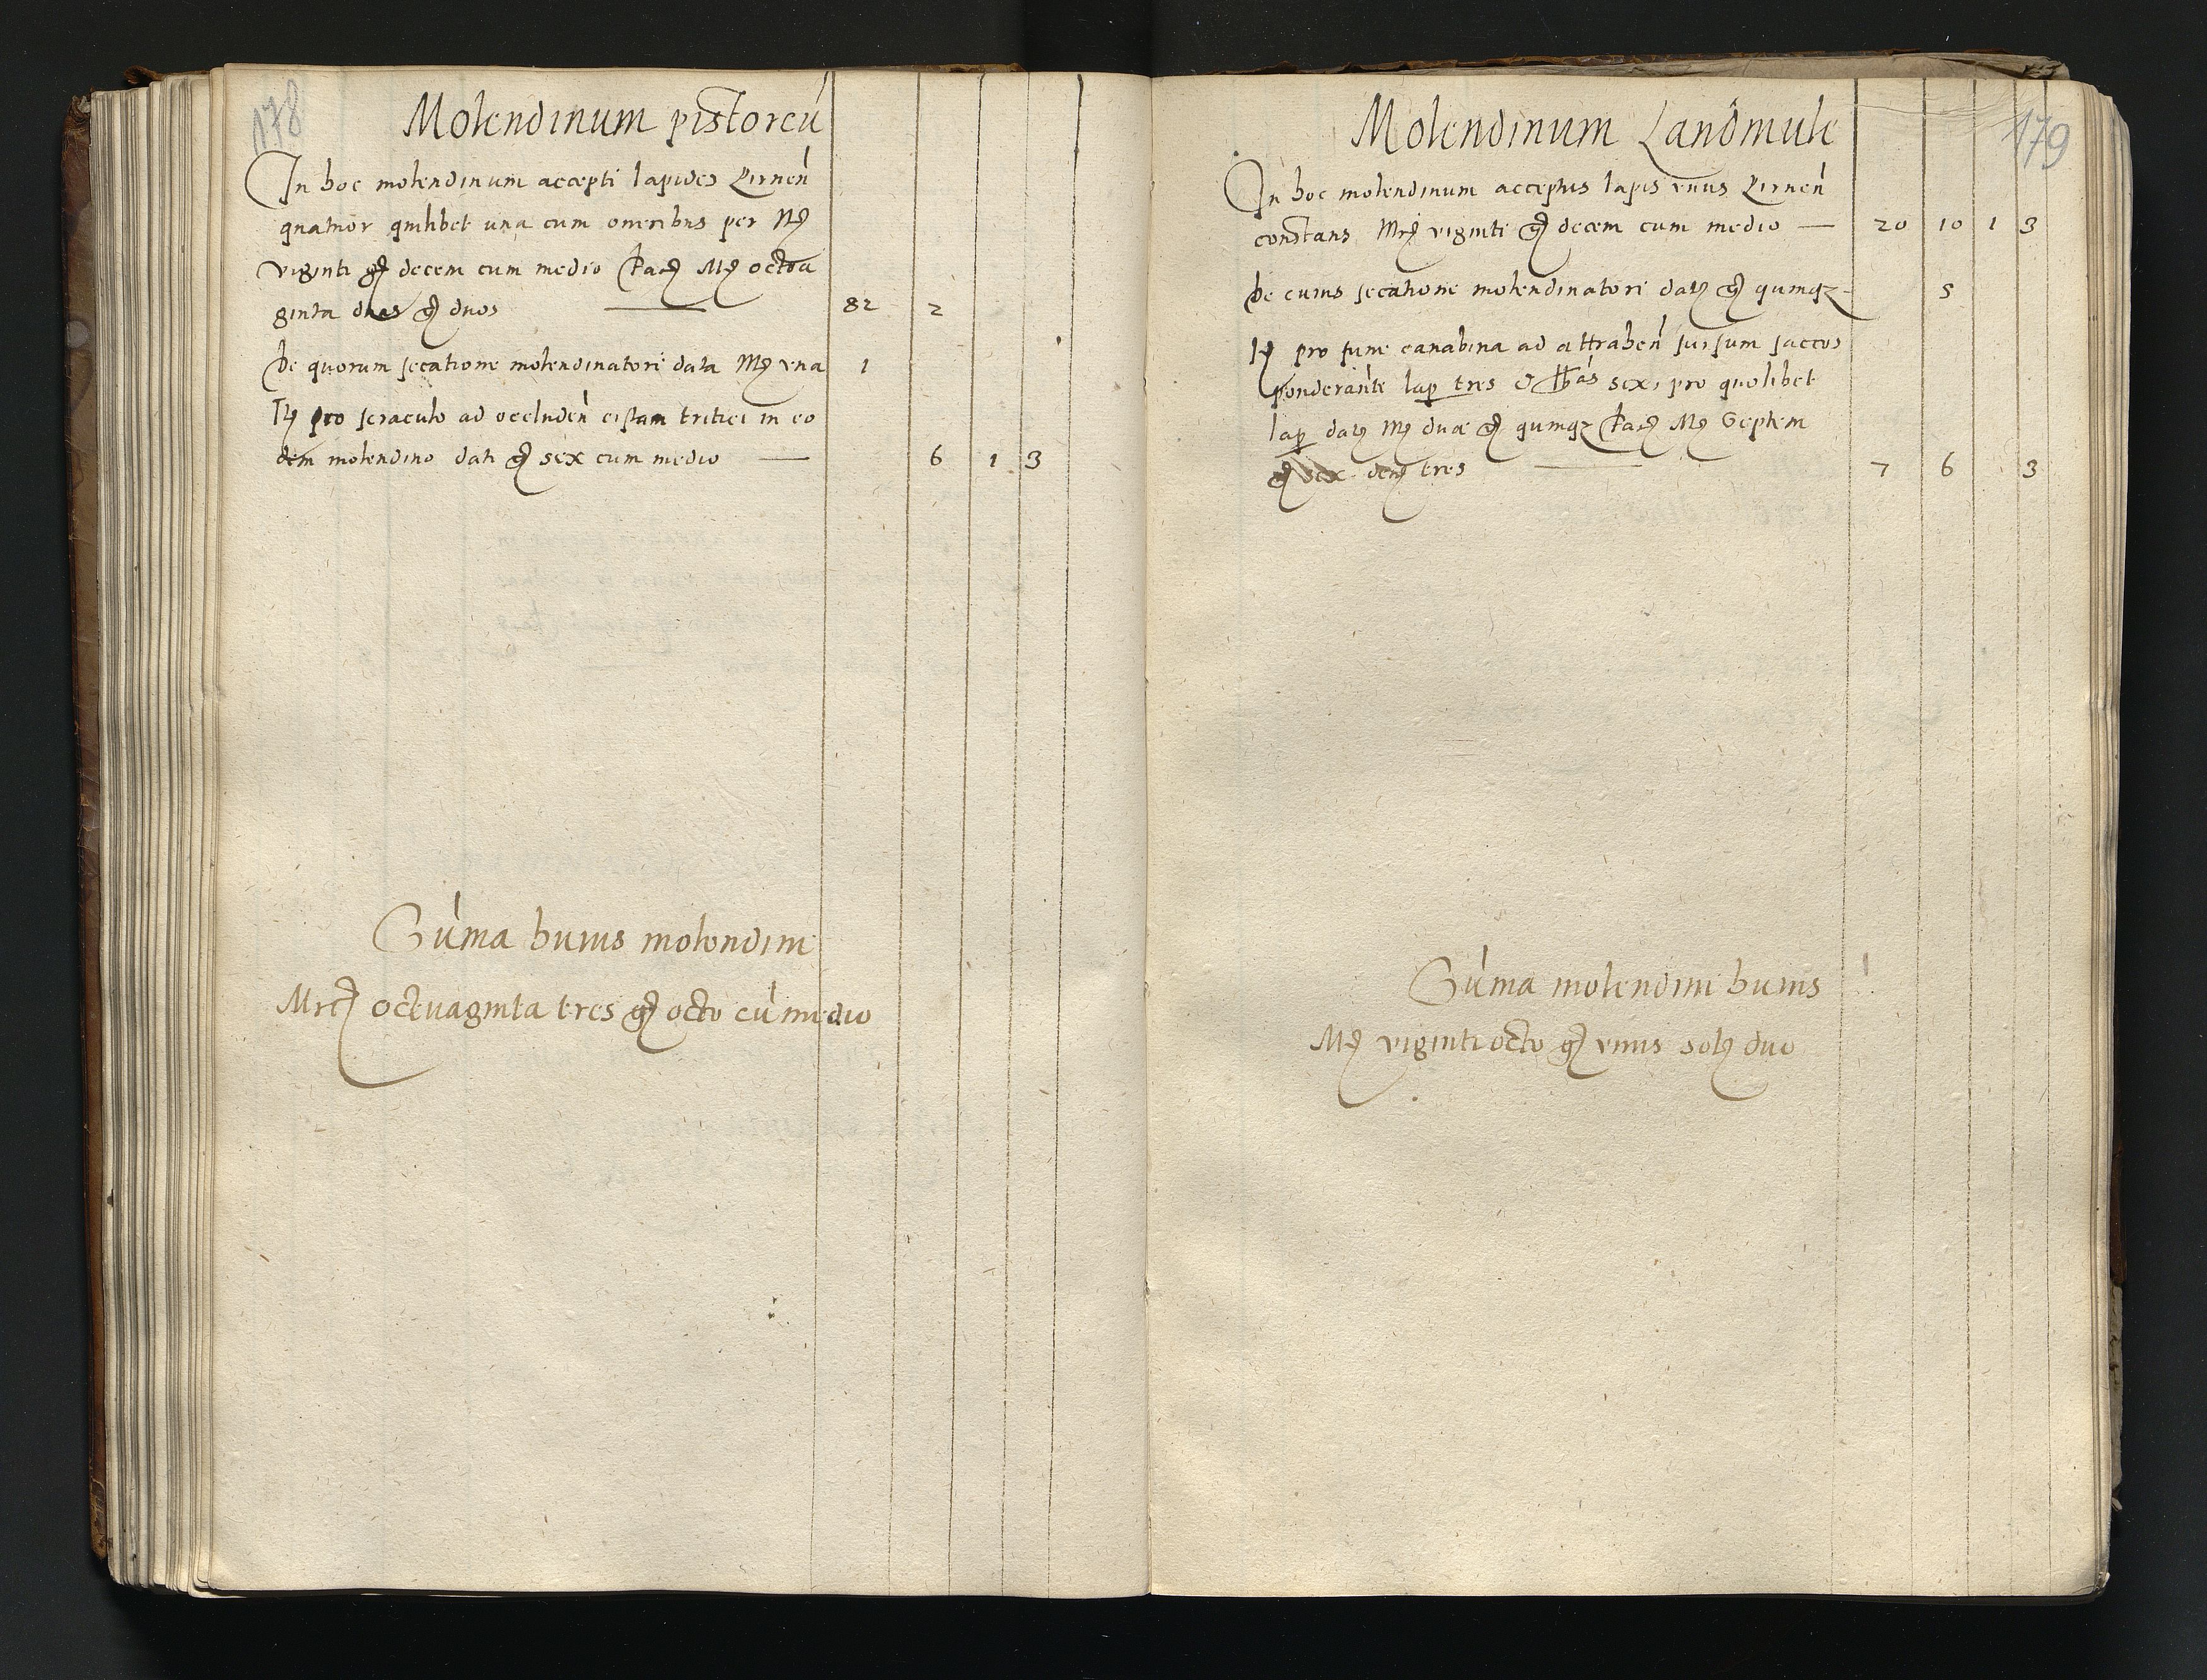 178
Molendinum pistoreu̇
In hoc molendinum accepti lapides Lirneṅ
quatuor quilibet una cum oneribus per Mꝭ
viginti gꝭ decem cum medio Facꝭ Mꝭ octua
ginta duas gꝭ duos — 82 2
De quorum secatione molendinatori data Mꝭ vna 1
Itꝭ pro seraculo ad occludeṅ cistam tritici in eo
dem molendino dati gꝭ sex cum medio — 6 1 3
Su̇ma huius molendini
Mrcꝭ octuaginta tres gꝭ octo cu̇ medio
179
Molendinum Landmule
In hoc molendinum acceptus lapis vnus Lirneṅ
constans Mrꝭ viginti gꝭ decem cum medio — 20 10 1 3
De cuius secatione molendinatori datꝭ gꝭ quinqz - 5
Itꝭ pro fune canabina ad attraheṅ sursum saccos
ponderante lap tres & lb as sex, pro quolibet
lap datꝭ Mꝭ duæ gꝭ quinqz Facꝭ Mꝭ Septem
gꝭ sex denꝭ tres — 7 6 3
Su̇ma molendini huius
Mꝭ viginti octo gꝭ vnus solꝭ duo